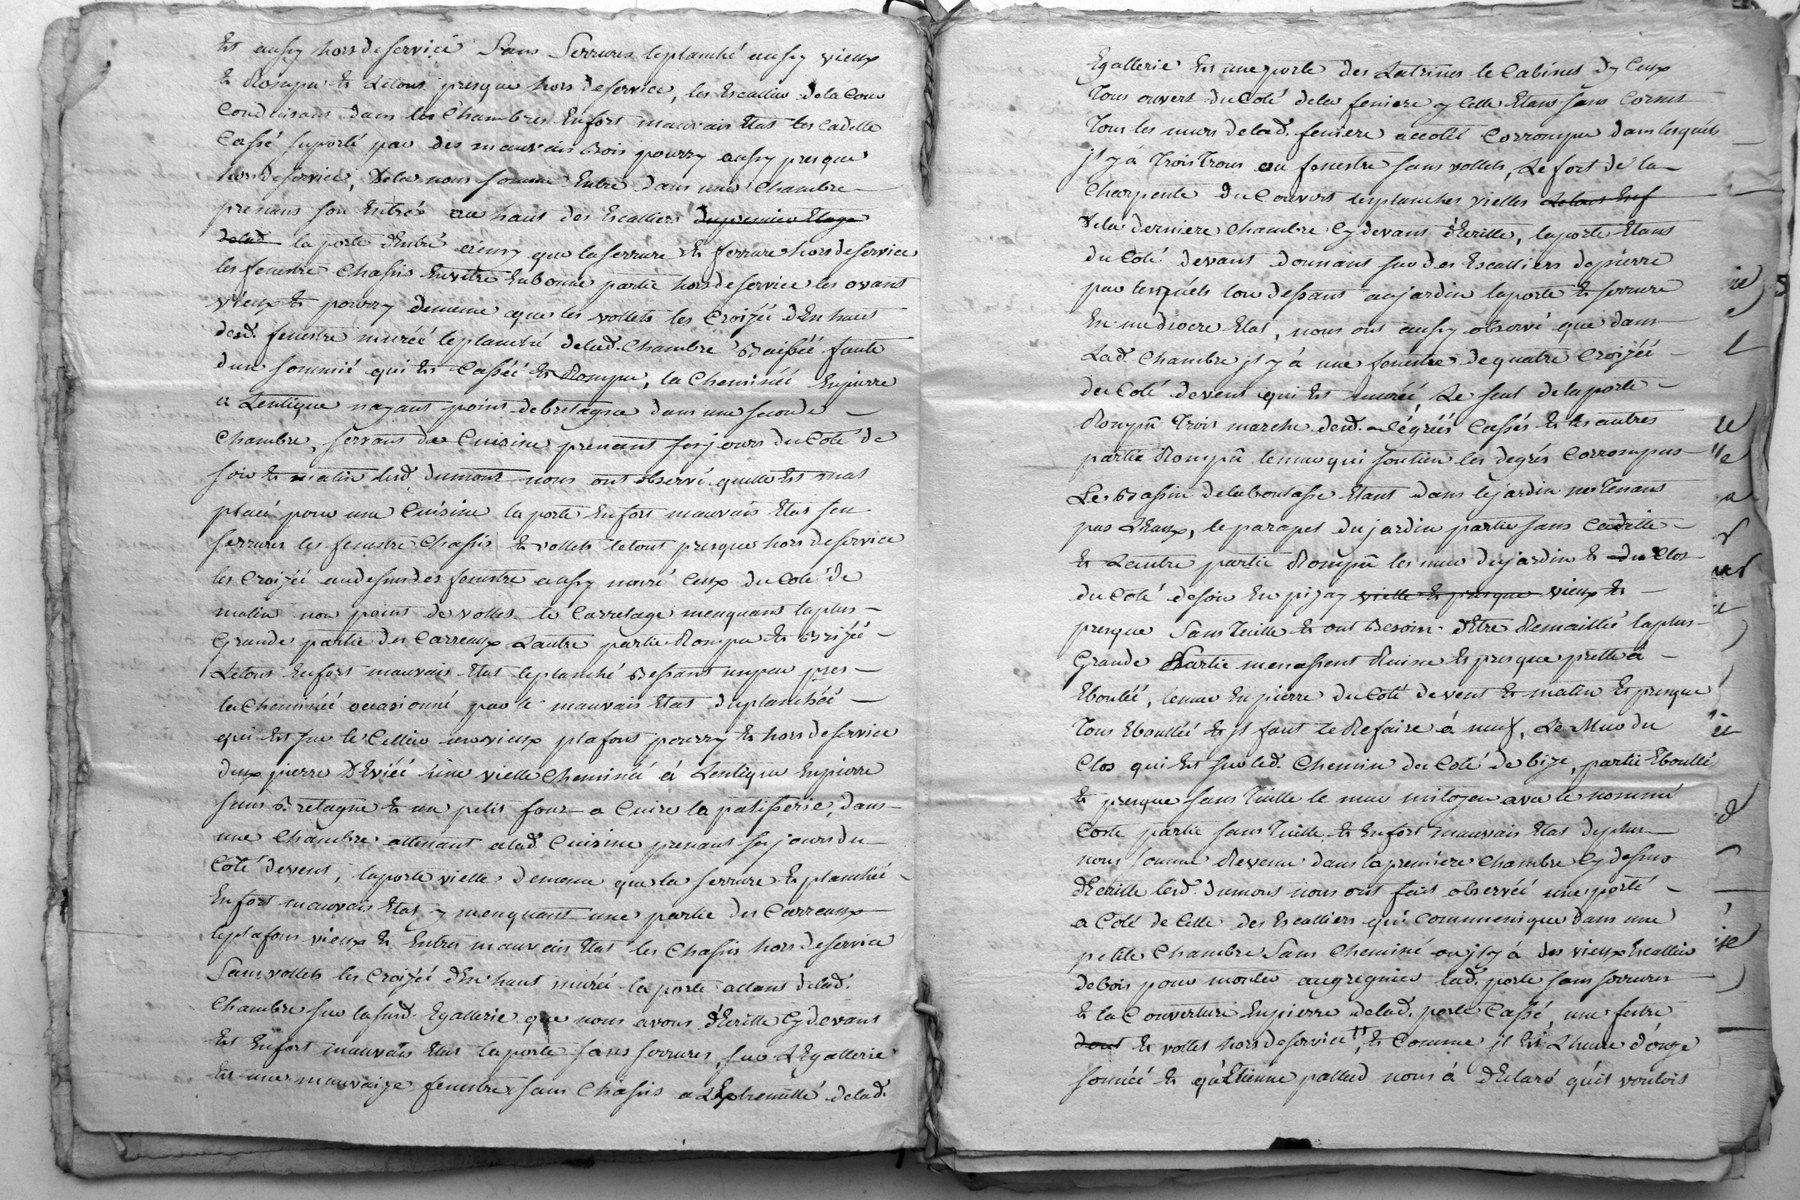 Est aussy hors de service Sans Serrures le planché aussy vieux
Et Rompu Et Letout presque hors de service, les Escallier dela Cour
Conduisant dans les Chambres En fort mauvais Etat les Cadette
Cassé suporté par des mauvais bois pourry aussy presque
hors de service, Dela nous somme Entre dans une chambre
prenant son Entrée au haut des Escalliers du premier Etage
delad. la porte dEntré ainsy que la serrure Et ferrure hors de service
les fenestre Chassis Envitre En bonne partie hors de service les
vieux Et pourry dememe que les vollets les Croizée dEn haut
desd. fenestre murée le planché delad. Chambre Baissée faute
dun sommié qui Est Cassée Et Rompu, la Cheminée En pierre
a Lentique nayant point de bretagne dans une seconde
Chambre, servant de Cuisine prenant ses jours du Coté de
soir Et matin lesd. dumont nous ont observé quelle Est mal
placé pour une Cuisine la porte En fort mauvais Etat sen
serrures les fenestre Chassis Et vollets letout presque hors de service
les Croizée audessus des fenestre aussy muré Ceux du Coté de
matin non point de vollet le Carrelage menquant la plus
Grande partie des Carreaux Lautre partie Rompu Et Brizée
Letout En fort mauvais Etat le planché Bessant un peu pres
la Cheminée occasionné par le mauvais Etat du planchée
qui Est sur le Cellier un vieux plafont pourry Et hors de service
deux pierre DEviéé une vielle Cheminée a Lentique En pierre
sans Bretagne Et un petit four a Cuire la patisserie, dans
une Chambre attenant alad. Cuisine prenant ses jours du
Coté devent, la porte vielle dememe que la serrure Et planché
En fort mauvais Etat y menquant une partie des Carreaux
le plafont vieux Et Entres mauvais Etat les Chassis hors de service
Sans vollets les Croizée dEn haut murée la porte allant delad.
Chambre sur la susd. Egallerie que nous avons dEcritte Cy devant
Est En fort mauvais Etat la porte sans serrures, sur LEgallerie
Est une mauvaize fenestre sans Chassis a LExtremitté delad.
Egallerie Est une porte des Latrines le Cabinet dy Ceux
Tous ouvert du Coté dela feniere y Celle Etant sans Cornet
Tous les murs delad. feniere a Coté Corrompu dans lesquels
jl y à Trois Trous ou fenestre sans vollets, Le fort de la
Charpente du Couvert les planches vielles
Dela derniere Chambre Cy devant dEcritte, la porte Etant
du Coté devant donnant sur des Escalliers de pierre
par lesquels lon dessant au jardin la porte Et serrure
En mediocre Etat, nous ont aussy observé que dans
Lad. Chambre jl y à une fenestre de quatre Croizéé
du Coté devent qui Est murée, Le seul dela porte
Rompû Trois marche desd. degréés Cassés Et les autres
partie Rompû le mur qui soutien les degrés Corrompus
Le Bassin dela boutasse Etant dans le jardin ne Tenant
pas LEaux, le parapet du jardin partie sans Cadette
Et Lautre partie Rompû les mur du jardin Et du Clos
du Coté de soir En pizay vielle Et presque vieux Et
presque Sans Tuille Et ont Besoin dEtre Remaillié la plus
Grande Partie menassent Ruine Et presque prette à
Eboulée, le mur En pierre du Coté devent Et matin Est presque
Tous Eboullée Et jl faut le Refaire à neuf, Le Mur du
Clos qui Est sur led. Chemin du Coté de bize, partie Eboullé
Et presque sans Tuille le mur mitoyen avec le nommé
Coste partie sans Tuille Et En fort mauvais Etat de plus
nous somme Revenu dans la premiere Chambre Cy dessus
dEcritte lesd. dumont nous ont fait observée une porte
a Coté de Celle des Escalliers qui Communique dans une
petite Chambre Sans Cheminé ou jl y à des vieux Escallier
de bois pour monter au grenier lad. porte sans serrures
Et la Couverture En pierre delad. porte Cassé une fenetre
dont Et vollet hors de service, Et Comme jl Est Lheure donze
sonnéé Et qu'Etienne pallud nous à dEclaré quil vouloit